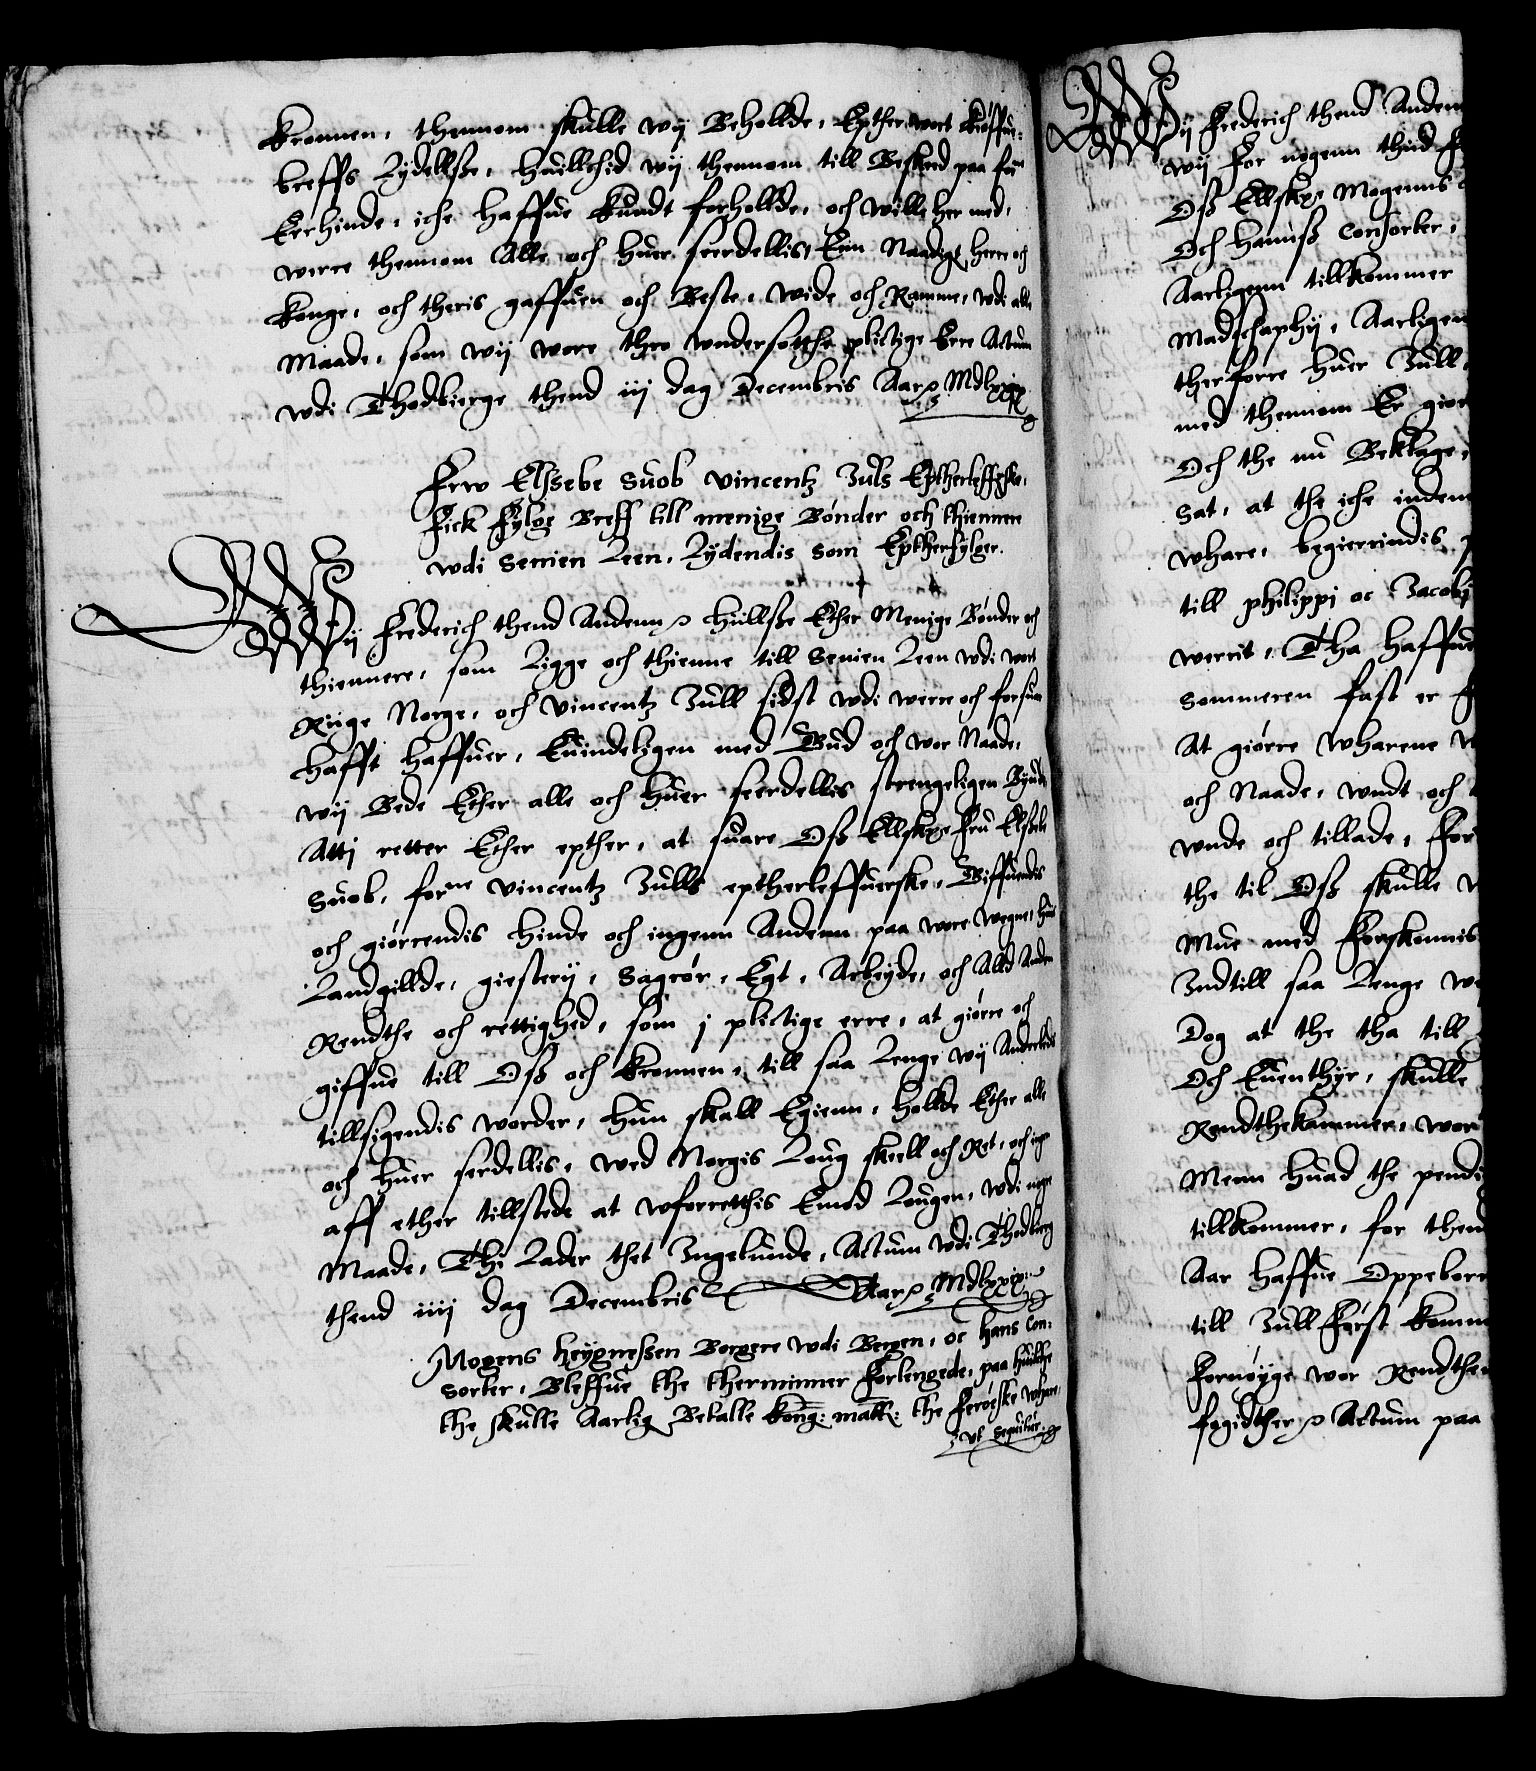 Kronnen, thennom skulle wij Beholde, Epther wort Kiøffue-
breffs Lydelsße, huilckid wij thennom till Beskeed paa fru
Eerhinde, icke haffue kundt forhollde, och wille her med,
werre thennom Alle och huer seerdellis, Enn Naadige herre och
Konge, och theris gaffuen och Beste, wide och Ramme, wdi alle
Maade, som wij wore thro wndersotthe plictige Erre Actum
wdi Thodbierge thend iij dag Decembris Aar &c. Mdlxxix
Frw Elssebe Suob Vincentz Juls Eptherleffuerske,
Fick Fylge Breff till menige Bønder och thiennere
wdi Senien Leen, Lydendis som Eptherfylger.
Wij Frederich thend Andenn &c. Hüllsße Ether Menige Bønder och
thiennere, som Ligge och thienne till Senien Leen wdi wort
Riige Norge, och Vincentz Jull sidst wdi werre och forsuar
hafft haffuer, Euindeligen med Gud och wor Naade,
wij Bede Ether alle och huer seerdellis strengeligen Byude
Atti retter Ether epther, at suare Oß Ellskge Fru Elßebe
Suob, forne Vincentz Julls eptherleffuerske, Giffuendis
och giørrendis hinde och ingenn Andenn paa wore wegne, huis
Landgillde, giesterij, Sagrør, Egt, Arbeyde, och Alld Anden
Rendthe och rettighed, som j plictige erre, at giøre och
giffue till Oß och Kronnen, till saa Lenge wij Anderledis
tillsigendis worder, Hun skall Egienn, hollde Ether alle
och huer serdellis, wed Norgis Loug skell och Ret, och inge
aff ether tillstede at wforretthis Emod Lougen, wdi noger
Maade, Thi Lader thet Ingelunde, Actum wdi Thodbierg
thend iiij dag Decembris Aar &c. Mdlxxix
Mogens Heygneßen Borgere wdi Bergen, oc Hans Con-
sorter, Bleffue the therminner Forlengede, paa huilcke
the skulle Aarlig Betalle Kong: matt: the Ferøeske whare,
vt sequitur.
Wij Frederich thend Anden
wij For nogenn thid
Oß Ellskge Mogenns
Och hannß Consorter,
Aarligenn tillkommer
Madschaphij, Aarligen
therforre huer Jull,
med thennom Er gior
Och the nu Beklage,
Sat, at the icke inden
whare, begierrindis
till philippi oc Jacobj
werrit, Tha haffue
Sommeren fast er
At giørre wharene
och Naade, wndt och
wnde och tillade, For
the til Oß skulle
Mue med Forskonnis
Indtill saa Lenge
Dog at the tha till
Och Euenthyr, skulle
Rendthekammer, wor
Menn huad the pendi
tillkommer, for thend
Aar haffue Oppeborr
till Jull Først komm
Fornøyge wor Rendthe
fogidther &c. Actum paa